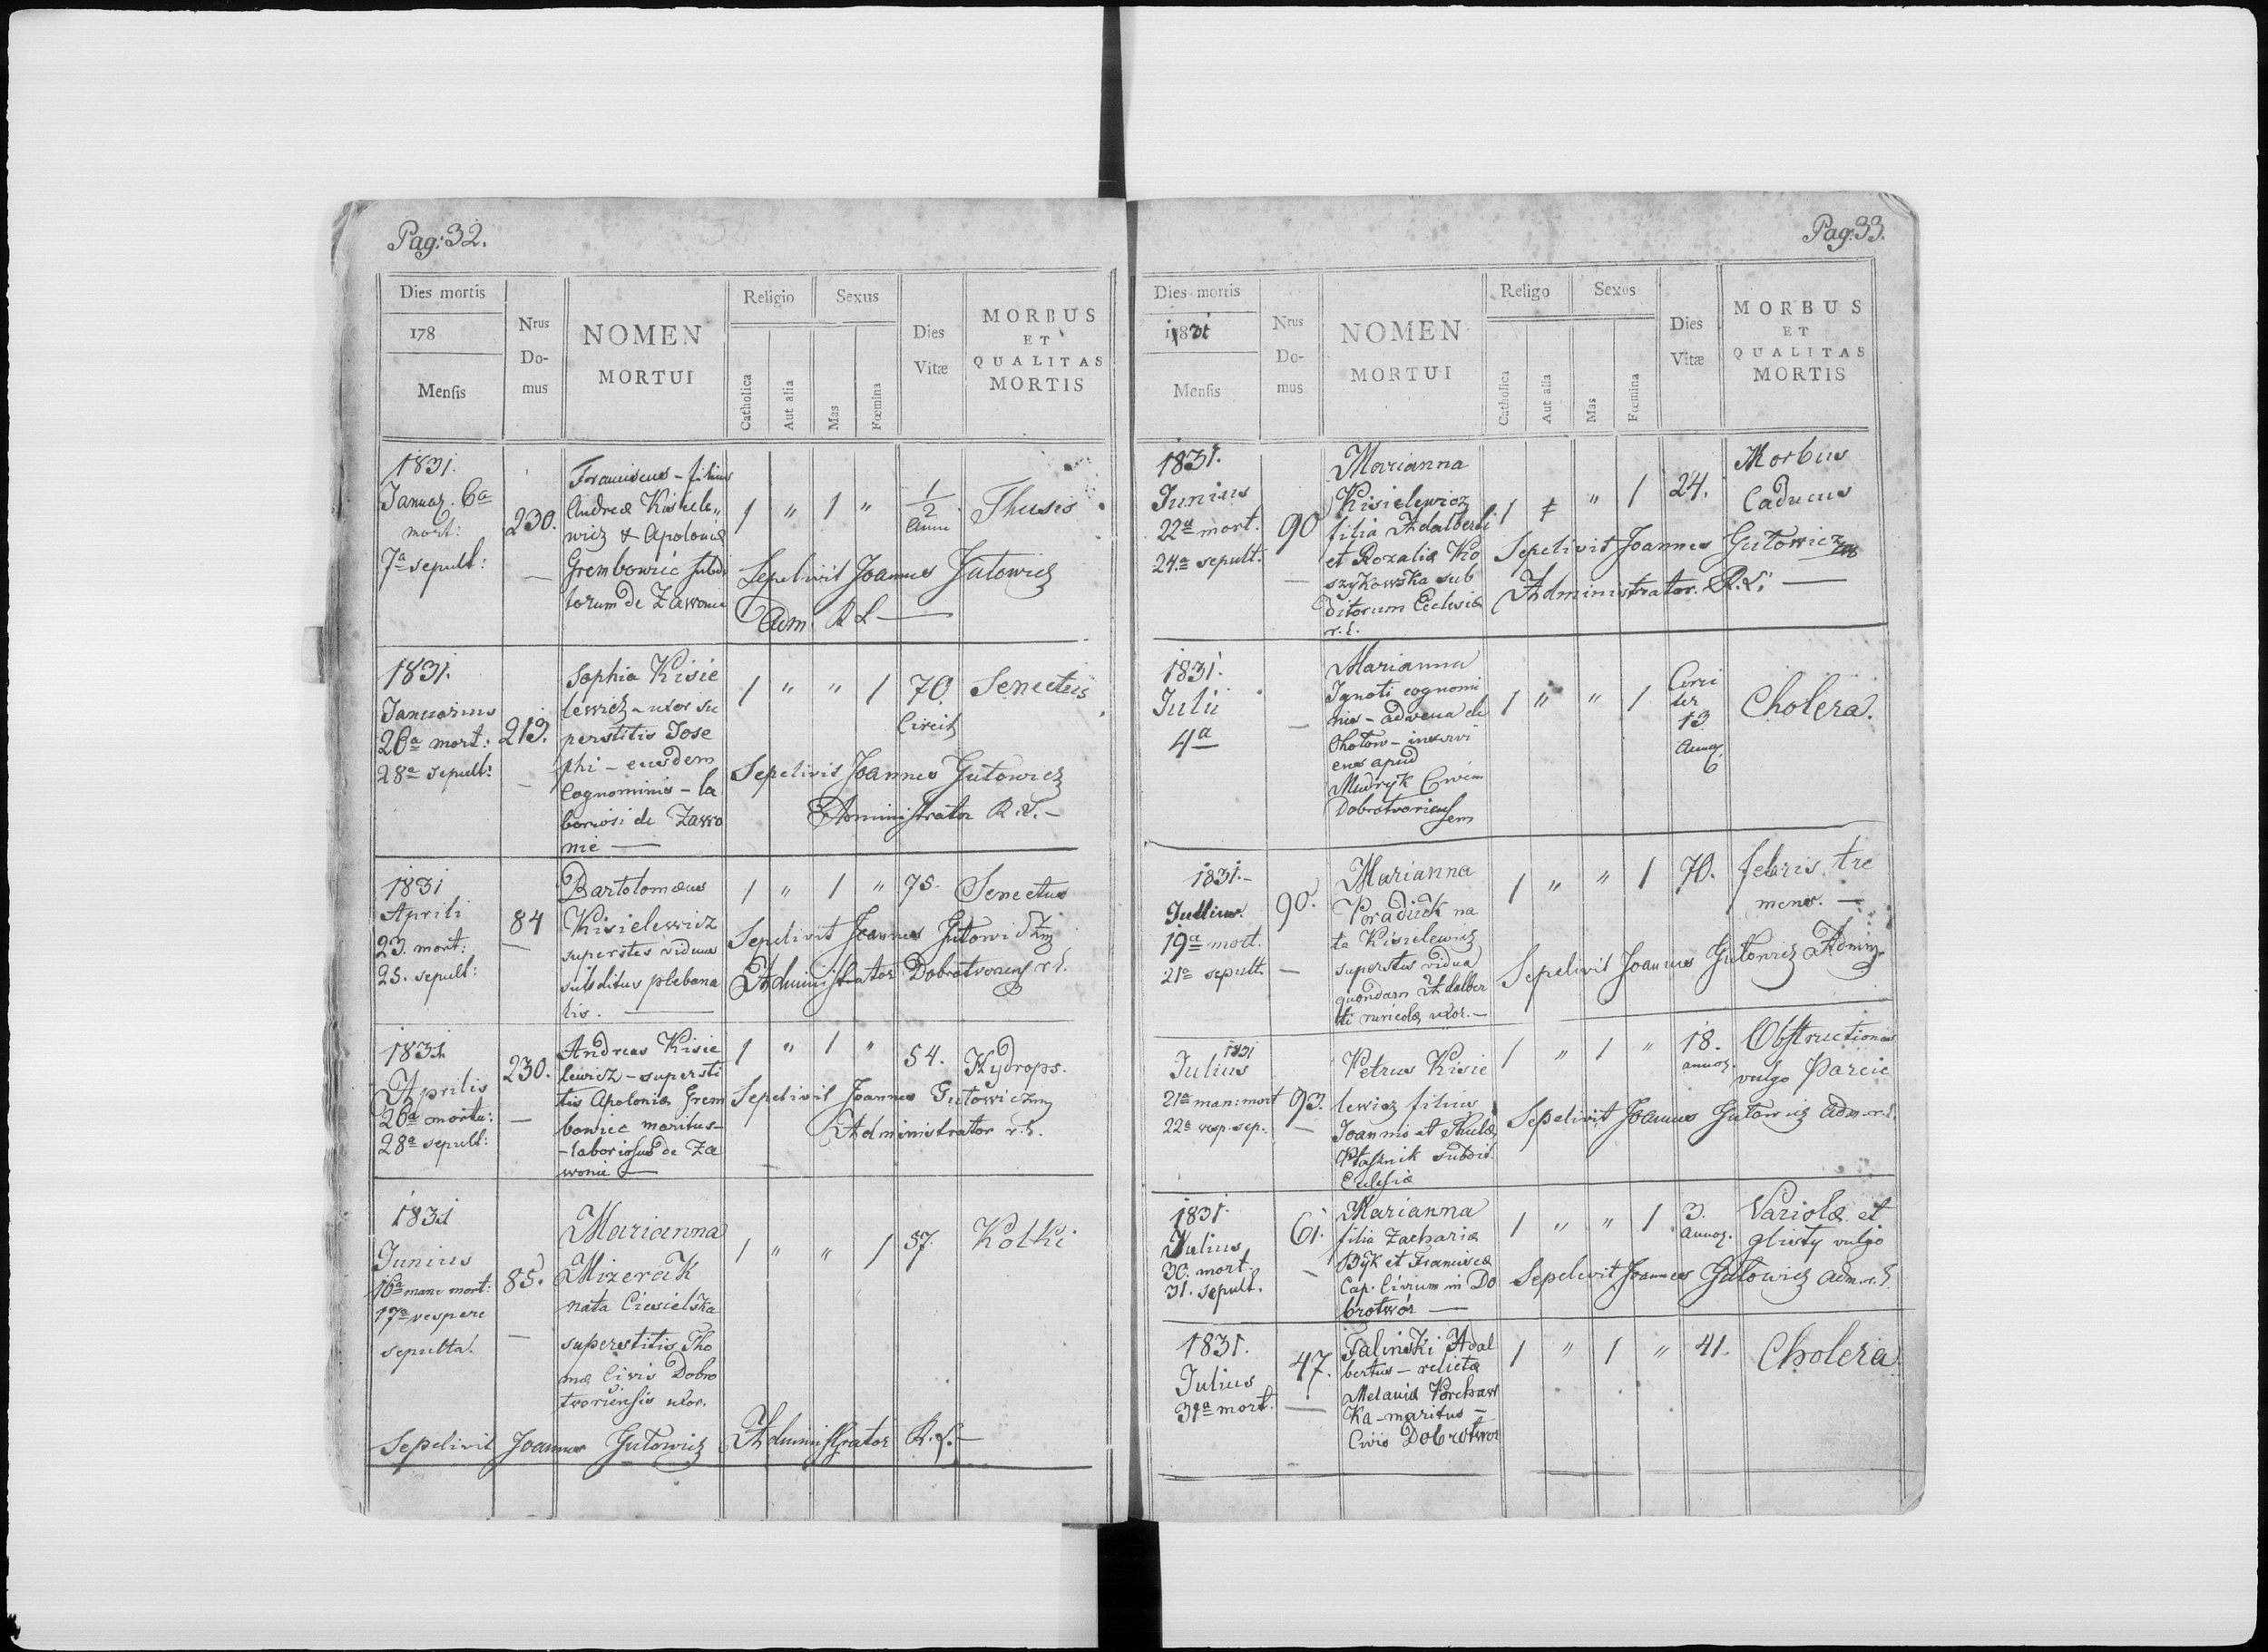 Pag: 32.
Dies mortis
178
Mensis
Nrus
Do-
mus
NOMEN
MORTUI
Religio
Catholica
Aut alia
Sexus
Mas
Fœmina
Dies
Vitæ
MORBUS
ET
QUALITAS
MORTIS
1831.
Januar. 6a
mort:
7a sepult:
230.
Franciscus - filius
Andreæ Kisiele„
wicz & Apoloniæ
Grembowiec subdi
torum de Zawonie
1 „ 1 „
1/2
Anni
Thusis
Sepelivit Joannes Gutowicz
Adm. R L
1831.
Januarius
26a mort:
28a sepult:
213.
Sophia Kisie
lewicz - uxor su
perstitis Jose
phi - eiusdem
Cognominis - la
boriosi de Zawo
nie
1 „ „ 1
70
Circit
Senectus
Sepelivit Joannes Gutowicz
Administrator R. L. -
1831
Aprili
23. mort:
25. sepult:
84
Bartolomæus
Kisielewicz
superstes viduus
subditus plebana
lis.
1 „ 1 „
75.
Senectus
Sepelivit Joannes Gutowicz
Administrator Dobrotworiens r. l.
1831.
Aprilis
26a mortu:
28a sepult:
230.
Andreas Kisie
lewicz - supersti
tis Apoloniæ Grem
bowiec maritus -
- laboriosus de Za
wonie
1 „ 1 „
54.
Hydrops.
Sepelivit Joannes Gutowicz
Administrator r. l.
1831
Junius
16a mane mort:
17a vespere
sepulta.
85.
Marianna
Mizerak
nata Ciesielska
superstitis Tho
mæ Civis Dobro
tworiensis uxor.
1 „ „ 1
57.
Kolki
Sepelivit Joannes Gutowicz Administrator R. L. -
Pag: 33.
Dies mortis
1831
Mensis
Nrus
Do-
mus
NOMEN
MORTUI
Religo
Catholica
Aut alia
Sexus
Mas
Fœmina
Dies
Vitæ
MORBUS
ET
QUALITAS
MORTIS
1831.
Junius
22a mort.
24.a sepult.
90
Marianna
Kisielewicz
filia Adalberti
et Rozaliæ Ko
szykowska sub
ditorum Ecclesiæ
r. l.
1 „ 1
24.
Morbus
Caducus
Sepelivit Joannes Gutowicz
Administrator. R. L.
1831.
Julii
4a
Marianna
Ignoti cognomi
nis - advena de
Chotow - inservi
ens apud
Mudryk Civem
Dobrotworiens
em
1 „ „ 1
Circi
ter
13
annor.
Cholera.
1831. -
Jullius.
19a mort.
21a sepult.
90.
Marianna
na
ta Kisielewicz
superstes vidua
quondam Adalber
ti ruricolæ uxor. -
1 „ „ 1
70.
febris tre
mens.
Sepelivit Joannes Gutowicz Admin.
1831
Julius
21a man: mort
22a vesp. sep.
93.
Petrus Kisie
lewicz filius
Joannis et Theclæ
Ptasznik subdit.
Ecclesiæ
1 „ 1 „
18.
annor.
Obstructiones
vulgo Parcie
Sepelivit Joannes Gutowicz adm. r. l.
1831.
Julius
30. mort.
31. sepult.
61.
Marianna
filia Zachariæ
Byk et Franciscæ
Cap. Civium in Do
brotwór
1 „ „ 1
3.
annor.
Variolæ et
glisty vulgo
Sepelivit Joannes Gutowicz adm. r. l.
1831.
Julius
31a mort.
47.
Talinski Adal
bertus - relictæ
Melaniæ
ka - maritus -
Civis Dobrotwor
1 „ 1 „
41.
Cholera